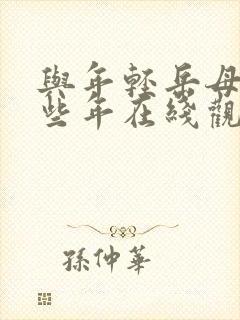 與年輕岳母
些年在綫觀
孫仲華